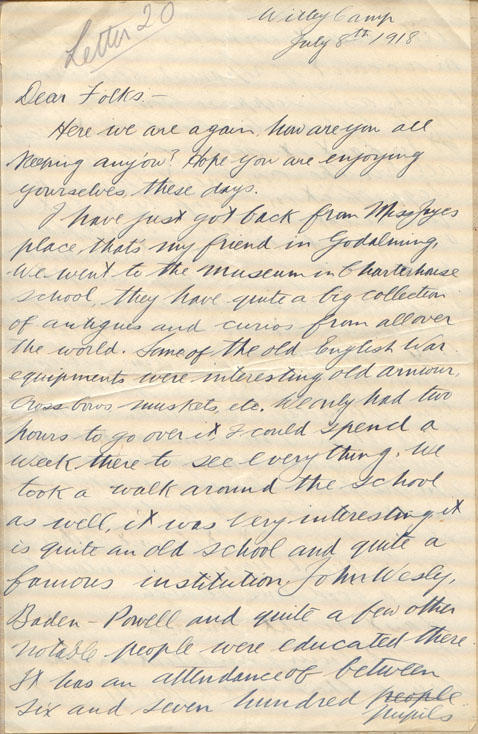 Letter 20
Witley Camp
July 8th 1918
Dear Folks.-
Here we are again, how are you all
keeping anyow? Hope you are enjoying
yourselves these days.
I have just got back from Miss
place, thats my friend in Godalming,
We went to the Museum in Charterhouse
School, they have quite a big collection
of antiques and curios from all over
the world. Some of the old English War
equipments were interesting old armour,
Cross bows muskets, etc. We only had two
hours to go over it, I could spend a
week there to see everything. We
took a walk around the school
as well, it was very interesting it
is quite an old school and quite a
famous institution. John Wesly,
Baden-Powell and quite a few other
notable people were educated there.
It has an attendance of between
six and seven hundred people
pupils